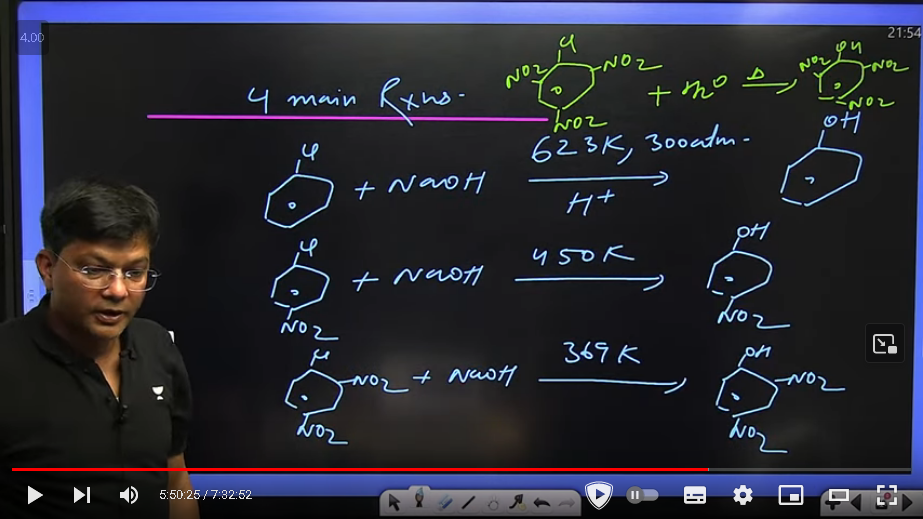 4.00
21:54
4 main Rxns.
Cl
NO2 NO2
NO2
+ H2O Δ
OH
NO2 NO2
NO2
Cl
+ NaOH 623K, 300atm.
H+
OH
Cl
+ NaOH 450K
OH
NO2 NO2
Cl
NO2 + NaOH 369K
NO2
OH
NO2
NO2
5:50:25 / 7:32:52